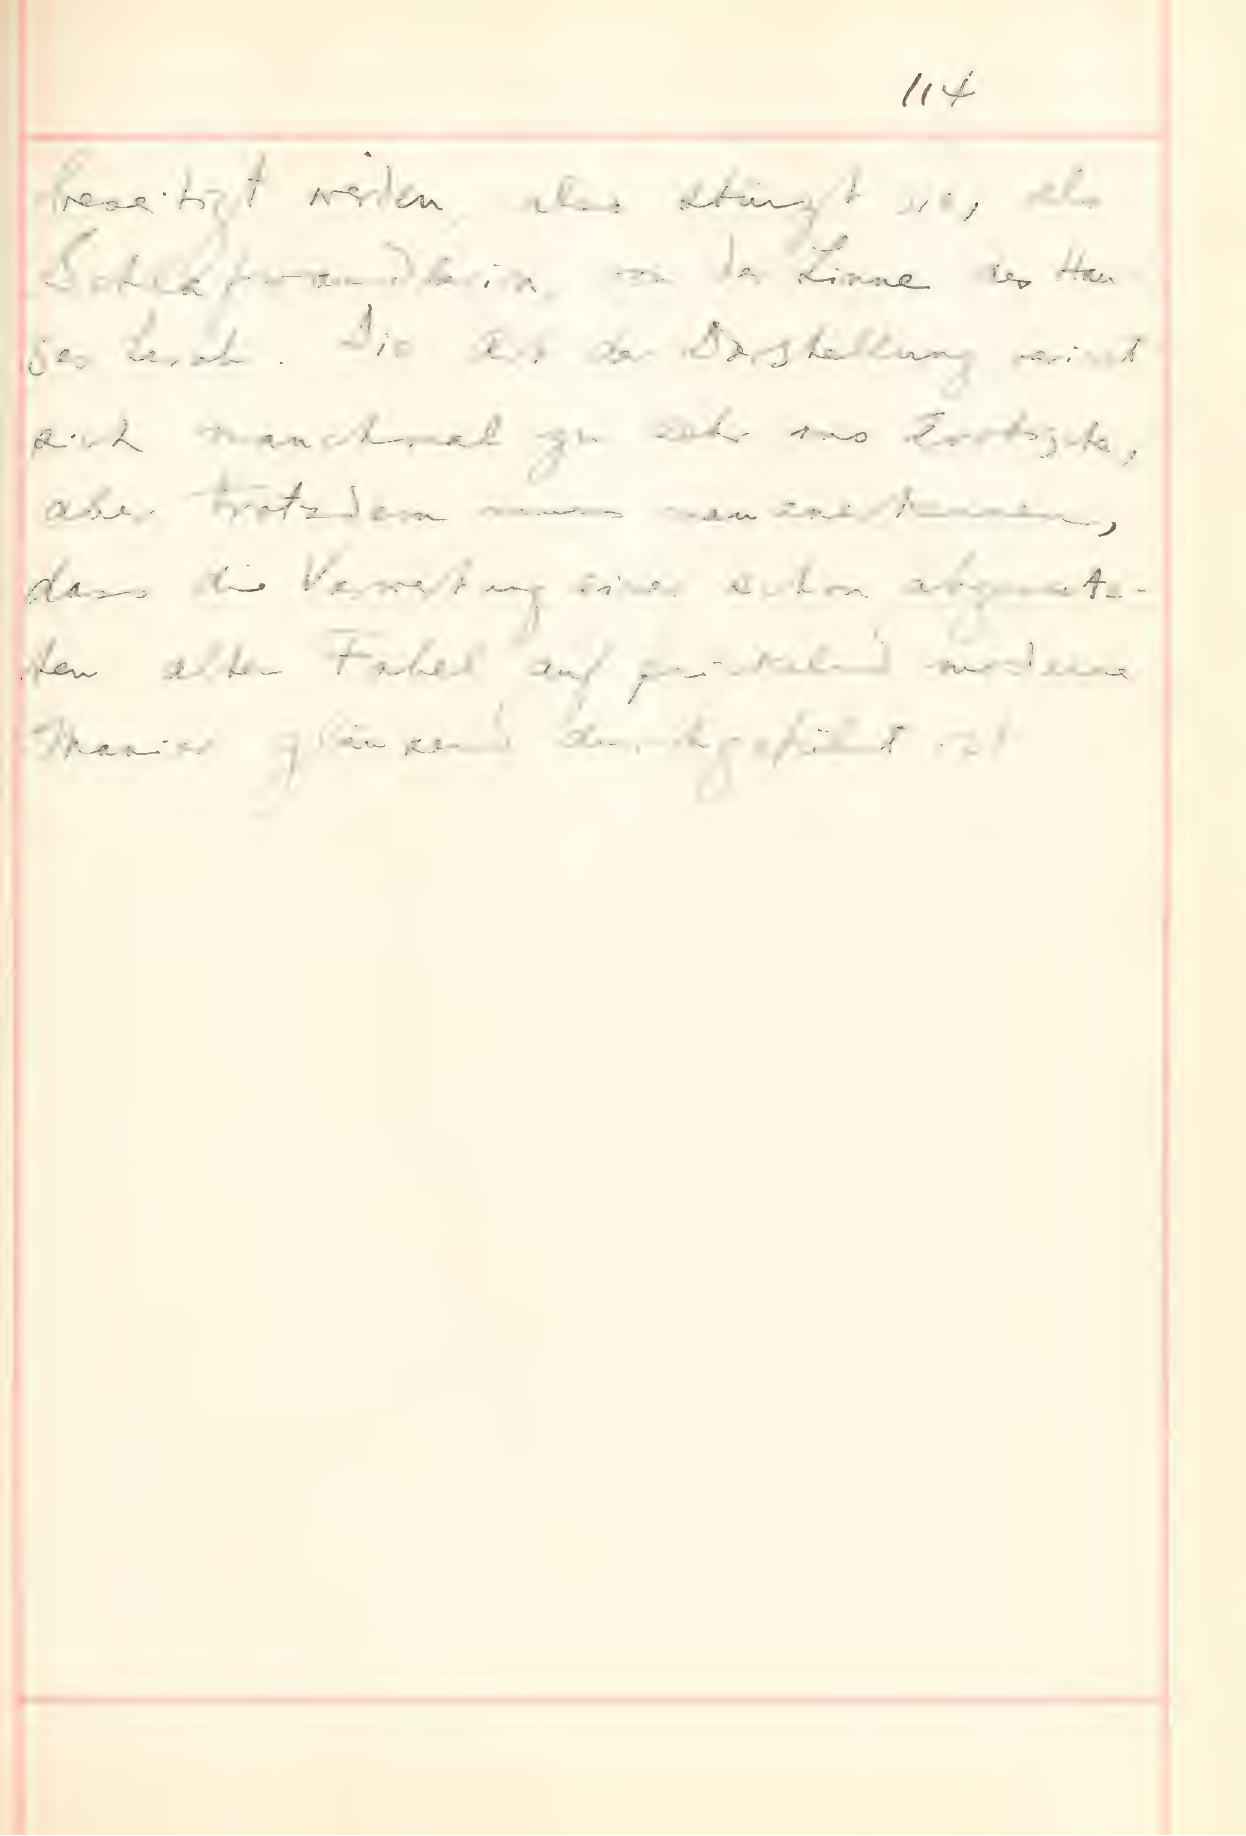 114
beseitigt werden, also stürzt sie, als
Schlafwandlerin, von der Zinne des Hau
ses herab. Die Art der Darstellung
sich manchmal zu sehr ins
aber trotzdem muss man anerkennen,
dass die Verwertung einer schon abgenutz-
ten alten Fabel auf prickelnd moderne
Manier glänzend durchgeführt ist